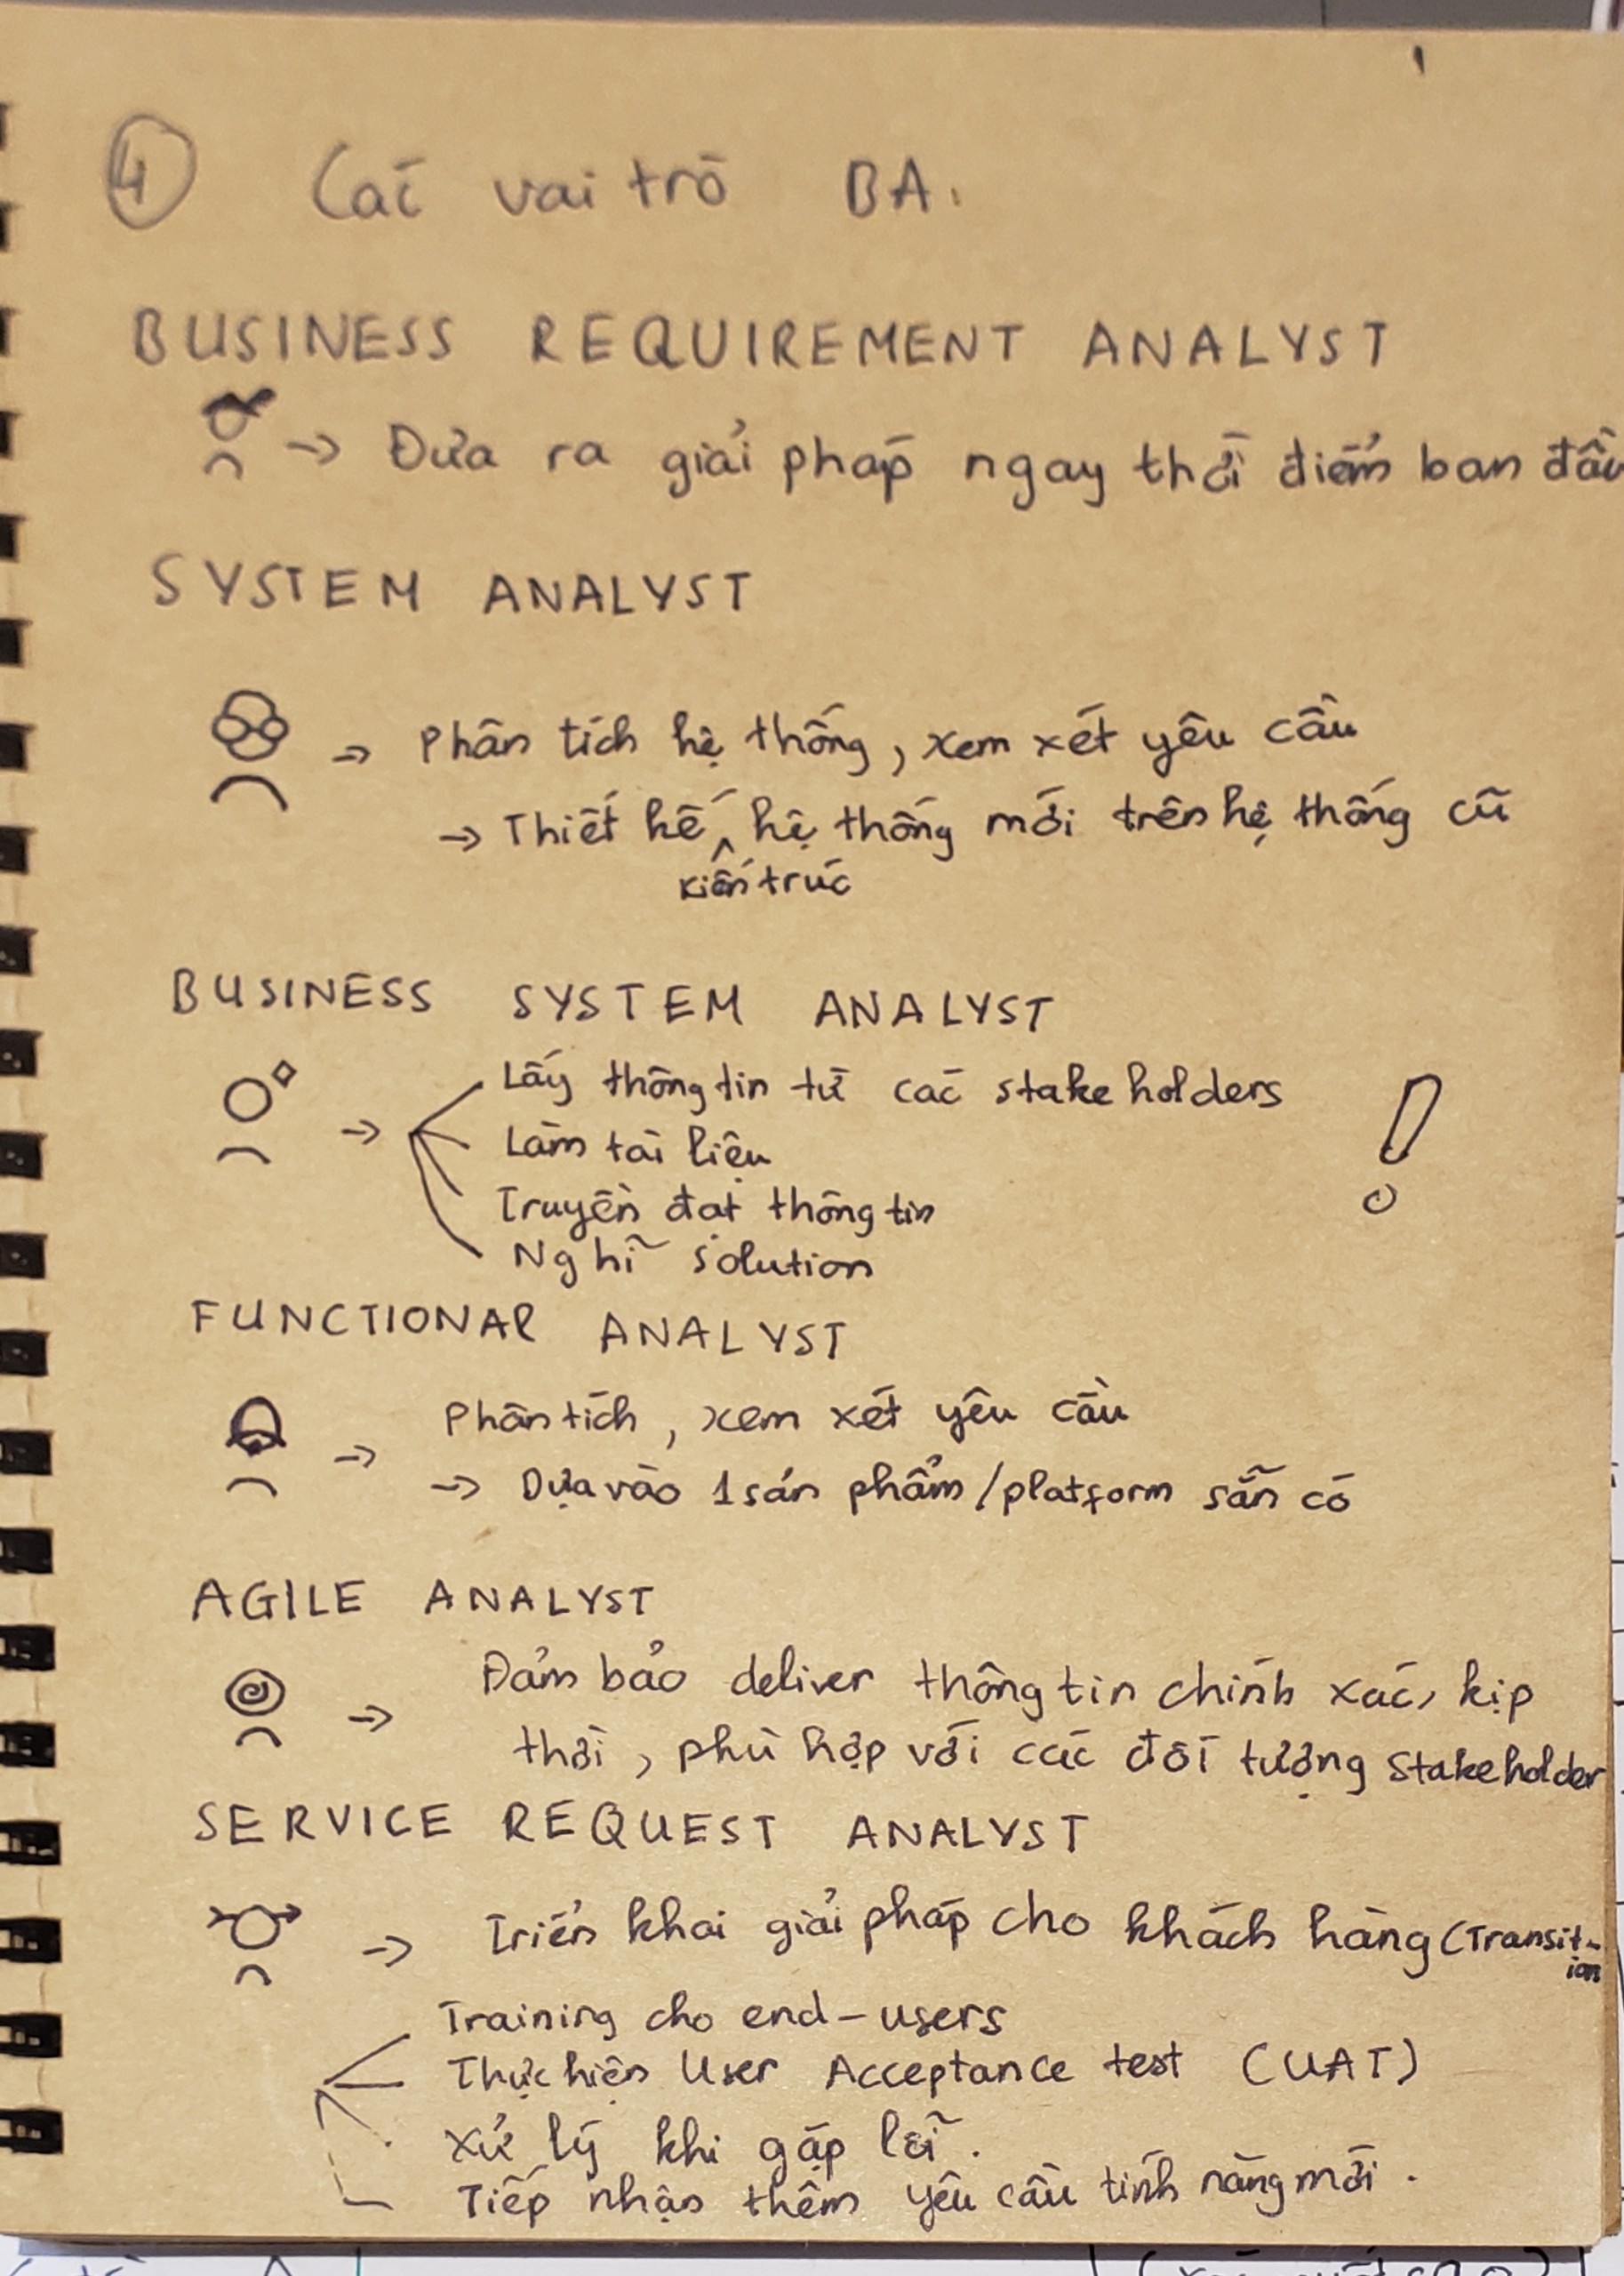 4 Các vai trò BA.
BUSINESS REQUIREMENT ANALYST
→ Đưa ra giải pháp ngay thời điểm ban đầu
SYSTEM ANALYST
→ Phân tích hệ thống, xem xét yêu cầu
→ Thiết kế ^ hệ thống mới trên hệ thống cũ
kiến trúc
BUSINESS SYSTEM ANALYST
→ Lấy thông tin từ các stakeholders
Làm tài liệu
Truyền đạt thông tin
Nghĩ solution
!
FUNCTIONAL ANALYST
→ Phân tích, xem xét yêu cầu
→ Dựa vào 1 sản phẩm/platform sẵn có
AGILE ANALYST
→ Đảm bảo deliver thông tin chính xác, kịp
thời, phù hợp với các đối tượng stakeholder
SERVICE REQUEST ANALYST
→ Triển khai giải pháp cho khách hàng (Transit-
ion
Training cho end-users
Thực hiện User Acceptance test (UAT)
Xử lý khi gặp lỗi.
Tiếp nhận thêm yêu cầu tính năng mới.